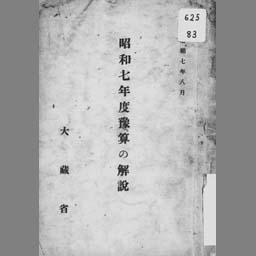 625
83
昭和七年八月
昭和七年度豫算の解說
大藏省